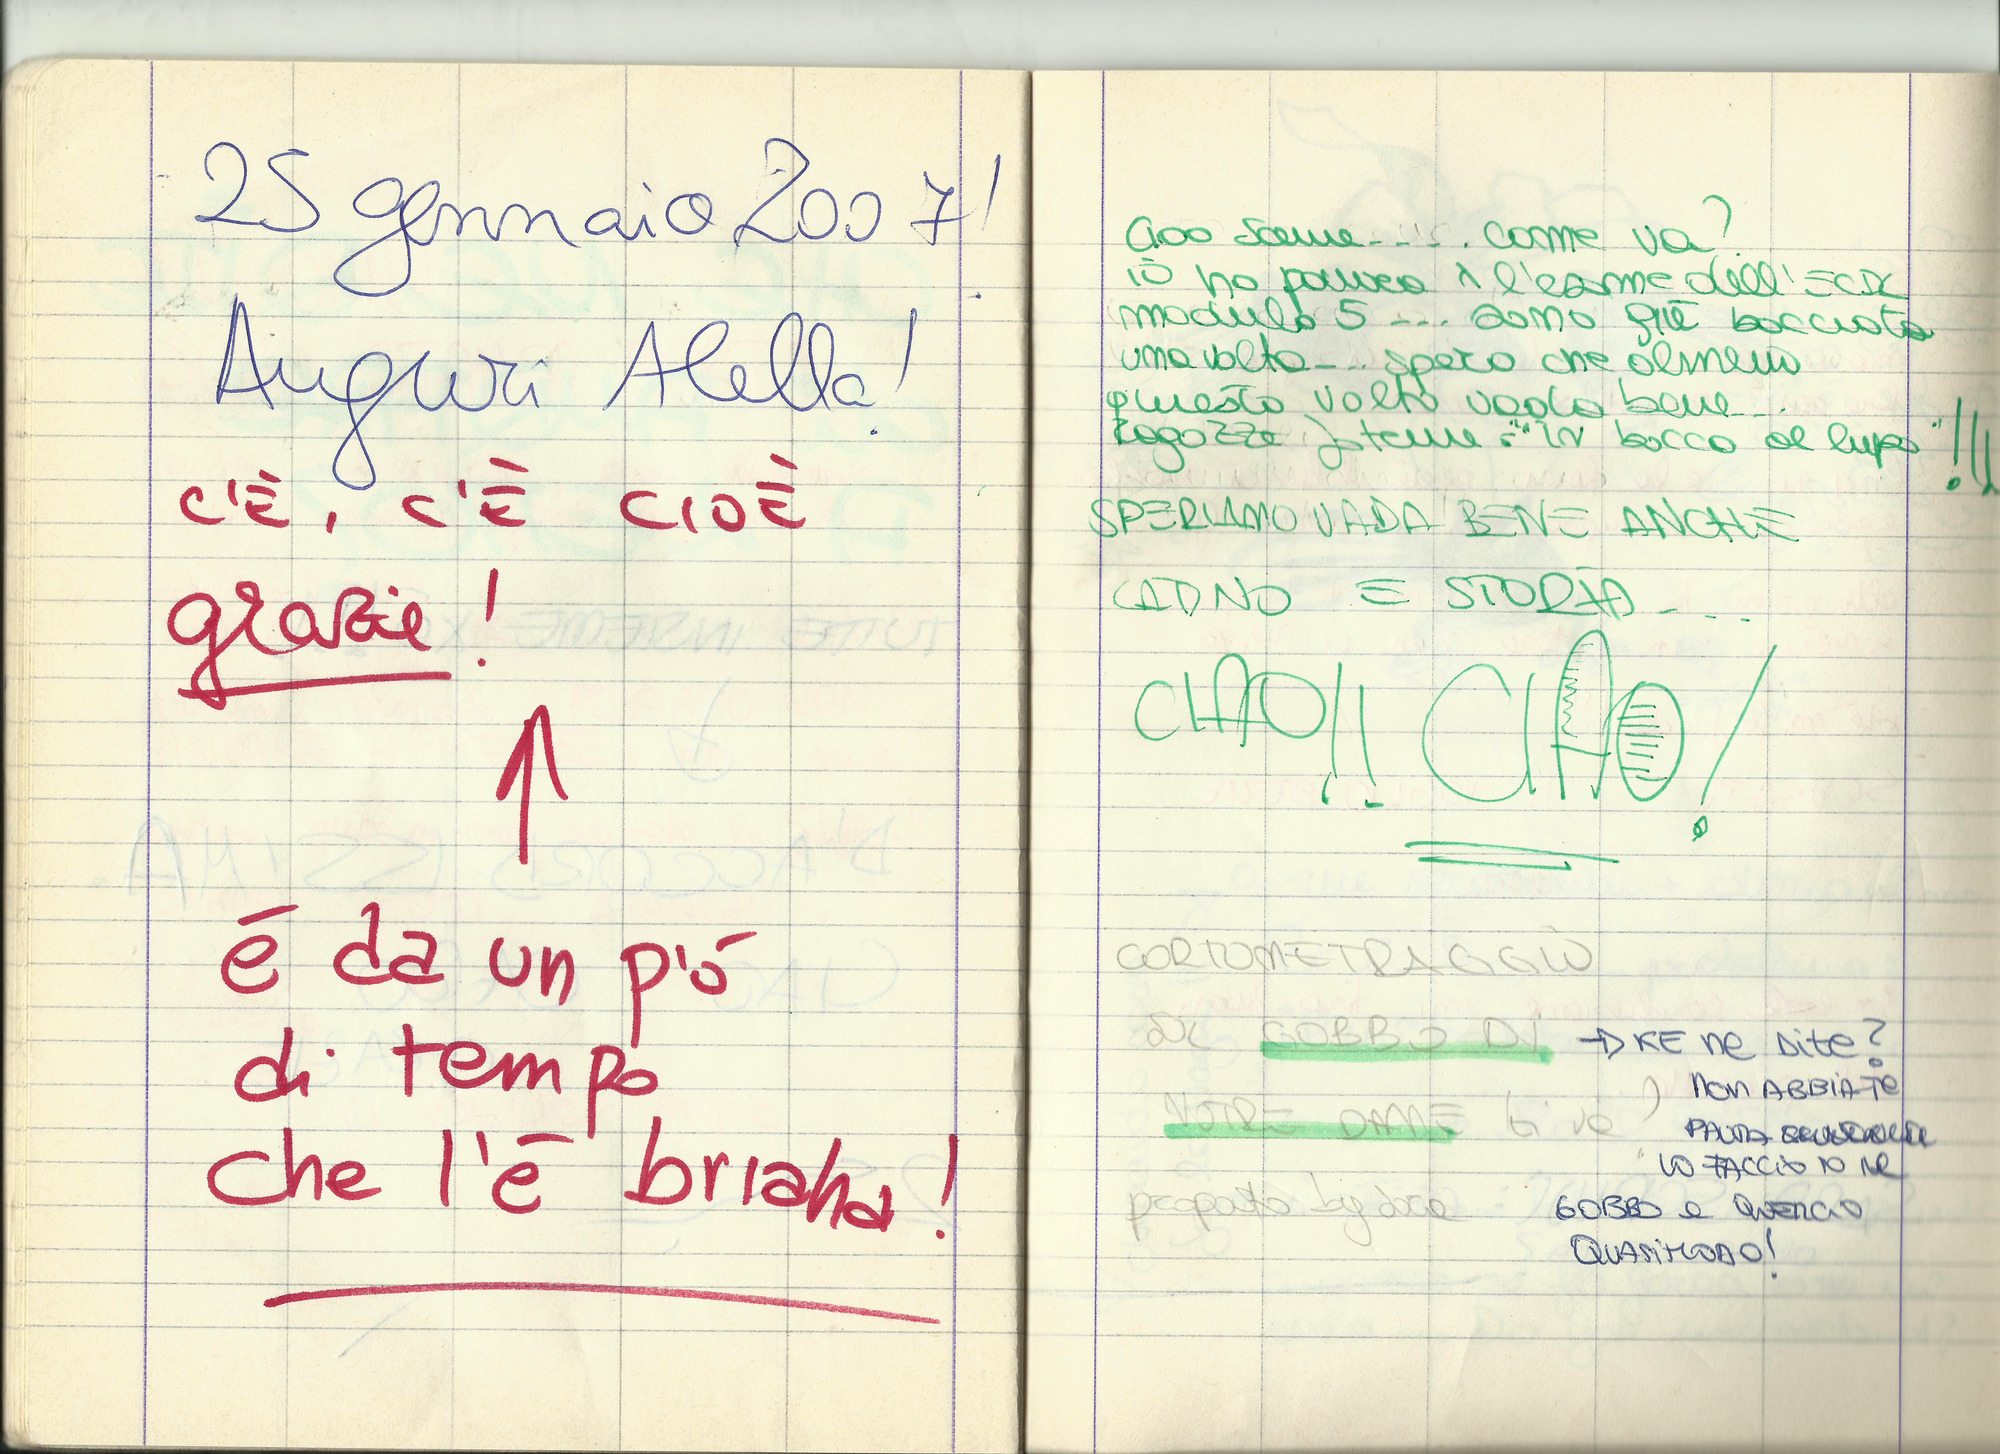 25 gennaio 2007!
Auguri Alella!
C'È, C'È CIOÈ
grazie!
è da un pò
di tempo
che l'è briaha!
Ciao sceme..... come va?
io ho paura x l'esame dell'ECDL
modulo 5 .... sono già bocciata
una volta... spero che almeno
questa volta vada bene...
Ragazze in bocca al lupo!!!
SPERIAMO VADA BENE ANCHE
E STORIA....
CIAO!! CIAO!
CORTOMETRAGGIO
GOBBO DI → KE NE DITE?
NON ABBIATE
NOTRE DAME ti va?
PAURA
LO FACCIO IO IL
proposto by
GOBBO e
QUASIMODO!